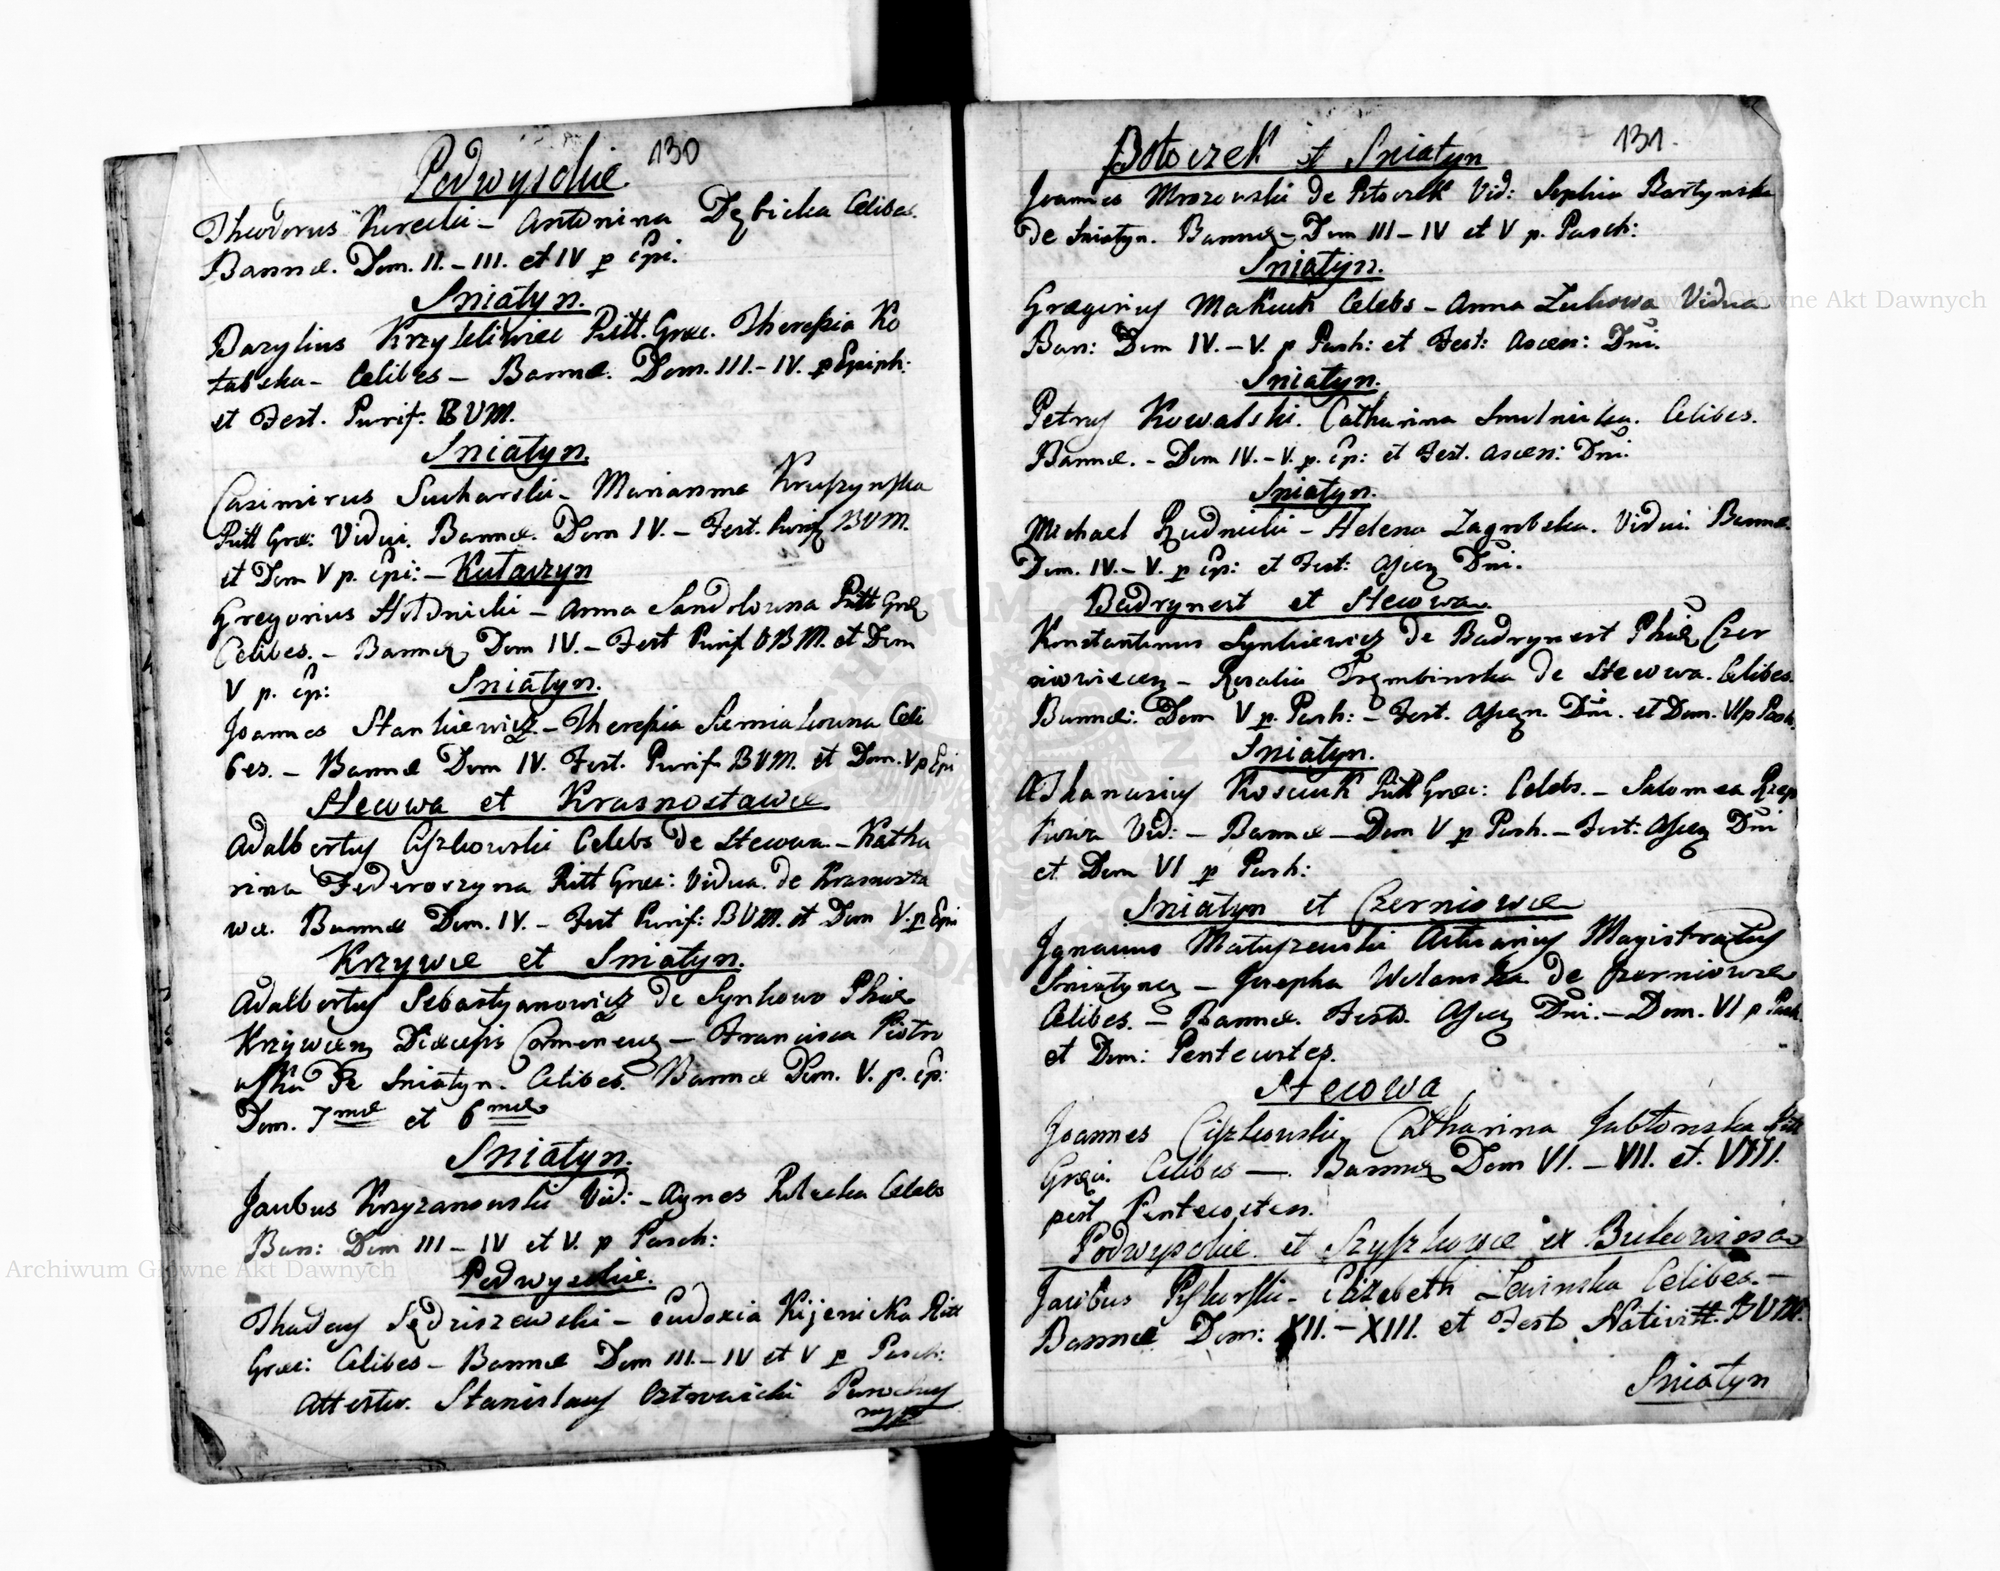 130
Podwysokie
Theodorus Kurecki – Antonina Dębicka Celibes.
Bannæ. Dom. II. – III. et IV p Epi.
Sniatyn.
Bazylius Ritt. Græc. Theressia Ko
– Celibes – Bannæ. Dom. III. – IV. p Epiph:
et Fest. Purif. BVM.
Sniatyn.
Casimirus Sucharski – Marianna Kruszynska
Ritt Græ: Vidui. Bannæ. Dom IV. – Fest. Purif BVM.
et Dom V p. Epi: – Kutaczyn
Gregorius Hołdnicki – Anna Ritt Græ
Celibes. – Bannæ Dom IV. – Fest Purif BVM. et Dom
V p. Ep: Sniatyn.
Joannes Stankiewicz – Theressia Celi
bes. – Bannæ Dom IV. Fest. Purif BVM. et Dom. V p Epi
Stecowa et Krasnostawce
Adalbertus Ciszkowski Celebs de Stecowa – Katha
rina Fedoroszyna Ritt Græc: Vidua. de Krasnosta
wce. Bannæ Dom. IV. – Fest Purif: BVM. et Dom V. p Epi
Krzywce et Sniatyn.
Adalbertus Sebastyanowicz de Synkowo Phiæ
Diæcesis – Francisca Piotro
wska de Sniatyn. Celibes. Bannæ Dom. V. p. Ep:
Dom. 7mæ et 6mæ
Sniatyn.
Jacobus Krzyzanowski Vid: – Agnes Celebs
Ban: Dom III – IV et V. p Pasch:
Podwysokie.
Thadeus Sędziszewski – Eudoxia Kijenicka Ritt
Græc: Celibes – Bannæ Dom III. – IV et V p Pasch:
Attestor. Stanislaus Parochus
mpp
131.
Potoczek et Sniatyn
Joannes Mrozowski de Potoczek Vid: Sophia Bartynska
de Sniatyn. Bannæ – Dom III – IV et V p. Pasch:
Sniatyn.
Gregorius Makuch Celebs – Anna Zukowa Vidua
Ban: Dom IV. – V. p Pash: et Fest: Ascen: Dni.
Sniatyn.
Petrus Kowalski. Catharina Smolnicka. Celibes.
Bannæ. – Dom IV. – V. p. Ep: et Fest. Ascen: Dni.
Sniatyn.
Michael Rudnicki – Helena Zagrobska. Vidui. Bannæ
Dom. IV. – V. p Ep: et Fest: Ascen Dni.
Badrynest et Stecowa.
Konstantinus Synkiewicz de Badrynest Phiæ Czer
niowiecen – Rosalia Trembinska de Stecowa. Celibes.
Bannæ: Dom V p. Pash: – Fest. Ascen. Dni. et Dom. VI p Pash.
Sniatyn.
Athanasius Kosciuk Ritt Græc: Celebs. – Salomea
Vid: – Bannæ – Dom V p Pash. – Fest: Ascen Dni
et Dom VI p Pash:
Sniatyn et Czerniowce
Ignatius Matuszewski Actuarius Magistratus
Sniatynen – Josepha Wolanska de Czerniowce
Celibes. – Bannæ. Festo. Ascen Dni. – Dom. VI p Pash.
et Dom: Pentecostes.
Stecowa
Joannes Ciszkowski, Catharina Jabłonska Ritt
Græci. Celibes –. Bannæ Dom VI. – VII. et. VIII.
post Pentecosten.
Podwysokie et Szyszkowce ex Bukowina
Jacobus Piskorski – Elizabeth Lewinska Celibes. –
Bannæ Dom: XII. – XIII. et Festo Nativitt. BVM.
Sniatyn
Archiwum Główne Akt Dawnych
Archiwum Główne Akt Dawnych